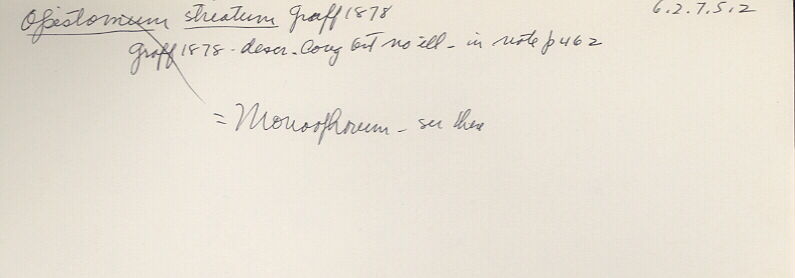 Opistomum striatum Graff 1878 6.2.7.5.2
Graff 1878 - descr. long but no ill - in note p 462
= Monoophorum - see there